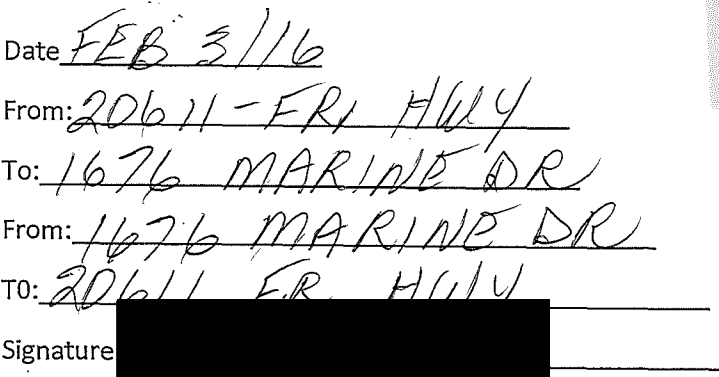 Date FEB 3/16
From: 20611 - FR, HWY
To: 1676 MARINE DR
From: 1676 MARINE DR
T0: 20611 FR HWY
Signature